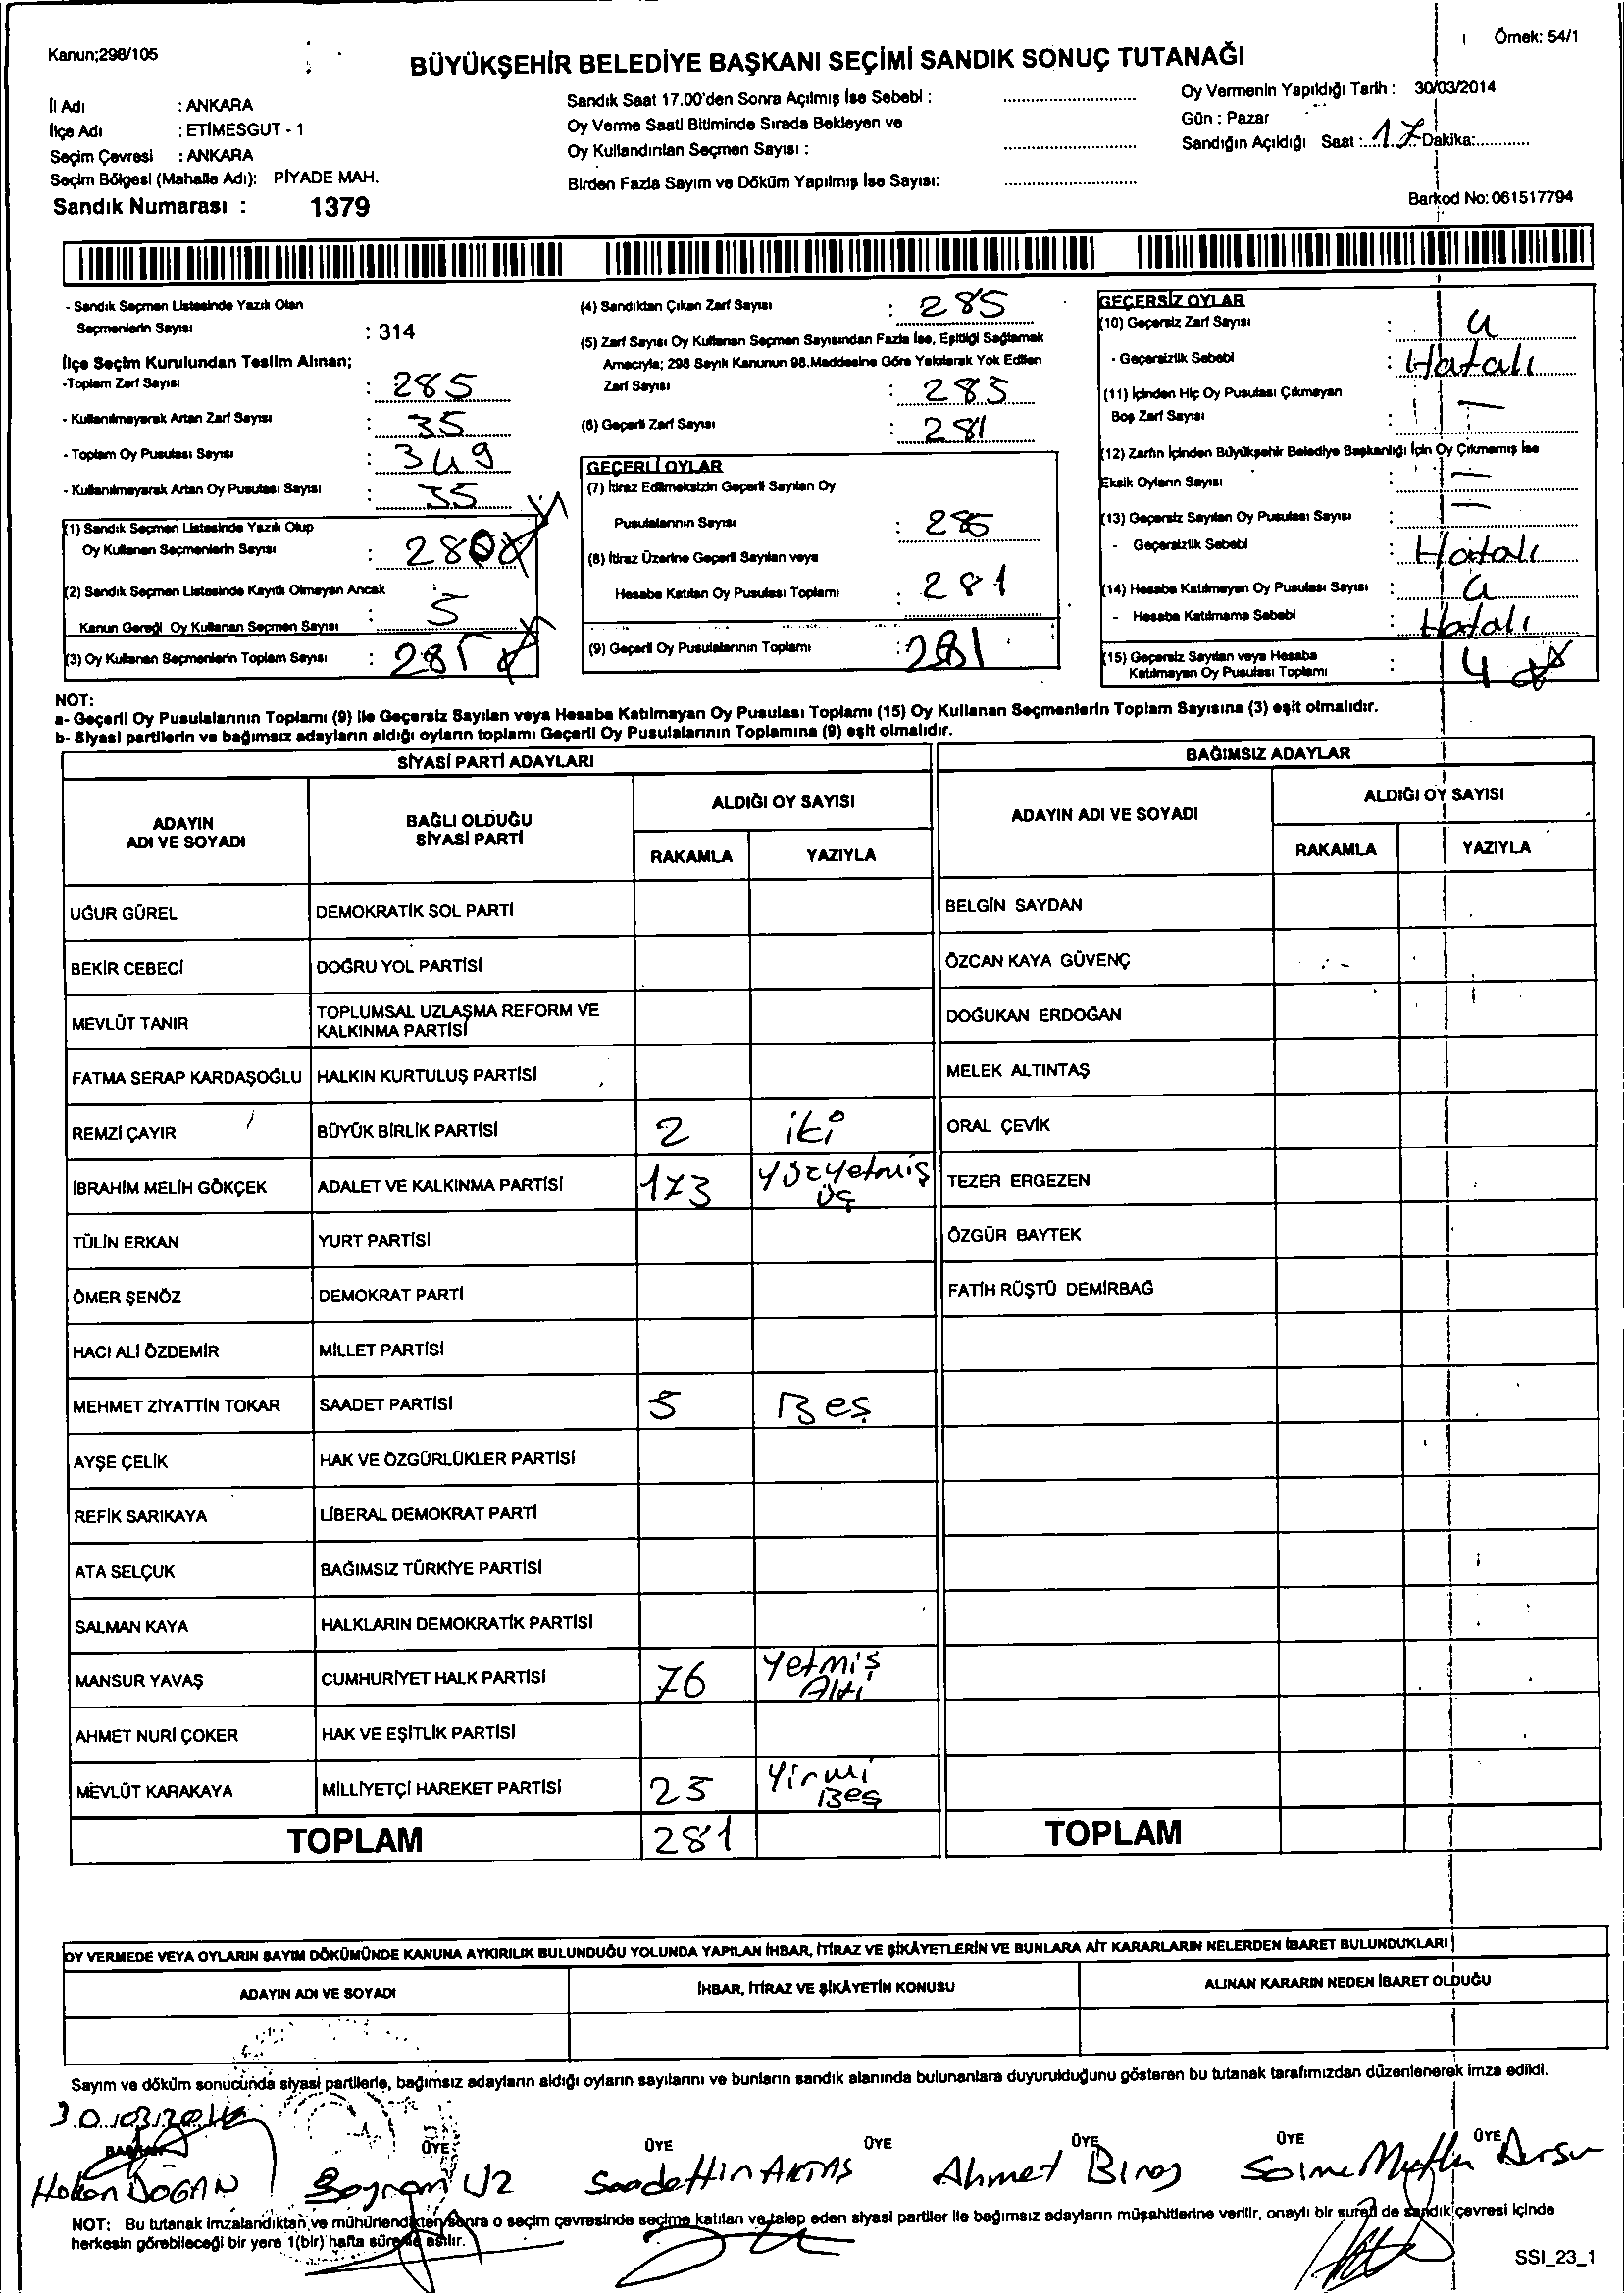 Kanun;298/105
Örnek: 54/1
BÜYÜKŞEHİR BELEDİYE BAŞKANI SEÇİMİ SANDIK SONUÇ TUTANAĞI
İl Adı : ANKARA
İlçe Adı : ETİMESGUT - 1
Seçim Çevresi : ANKARA
Seçim Bölgesi (Mahalle Adı): PİYADE MAH.
Sandık Numarası : 1379
Sandık Saat 17.00'den Sonra Açılmış İse Sebebi :
Oy Verme Saati Bitiminde Sırada Bekleyen ve
Oy Kullandırılan Seçmen Sayısı :
Birden Fazla Sayım ve Döküm Yapılmış İse Sayısı:
Oy Vermenin Yapıldığı Tarih : 30/03/2014
Gün : Pazar
Sandığın Açıldığı Saat : 17 Dakika:
Barkod No: 061517794
- Sandık Seçmen Listesinde Yazılı Olan
Seçmenlerin Sayısı : 314
İlçe Seçim Kurulundan Teslim Alınan;
-Toplam Zarf Sayısı : 285
- Kullanılmayarak Artan Zarf Sayısı : 35
- Toplam Oy Pusulası Sayısı : 349
- Kullanılmayarak Artan Oy Pusulası Sayısı : 35
(1) Sandık Seçmen Listesinde Yazılı Olup
Oy Kullanan Seçmenlerin Sayısı : 280
(2) Sandık Seçmen Listesinde Kayıtlı Olmayan Ancak
Kanun Gereği Oy Kullanan Seçmen Sayısı : 5
(3) Oy Kullanan Seçmenlerin Toplam Sayısı : 285
(4) Sandıktan Çıkan Zarf Sayısı : 285
(5) Zarf Sayısı Oy Kullanan Seçmen Sayısından Fazla İse, Eşitliği Sağlamak
Amacıyla; 298 Sayılı Kanunun 98.Maddesine Göre Yakılarak Yok Edilen
Zarf Sayısı : 285
(6) Geçerli Zarf Sayısı : 281
GEÇERLİ OYLAR
(7) İtiraz Edilmeksizin Geçerli Sayılan Oy
Pusulalarının Sayısı : 285
(8) İtiraz Üzerine Geçerli Sayılan veya
Hesaba Katılan Oy Pusulası Toplamı : 281
(9) Geçerli Oy Pusulalarının Toplamı : 281
GEÇERSİZ OYLAR
(10) Geçersiz Zarf Sayısı : 4
- Geçersizlik Sebebi : Hatalı
(11) İçinden Hiç Oy Pusulası Çıkmayan
Boş Zarf Sayısı : —
(12) Zarfın İçinden Büyükşehir Belediye Başkanlığı İçin Oy Çıkmamış İse
Eksik Oyların Sayısı : —
(13) Geçersiz Sayılan Oy Pusulası Sayısı : —
- Geçersizlik Sebebi : Hatalı
(14) Hesaba Katılmayan Oy Pusulası Sayısı : 4
- Hesaba Katılmama Sebebi : Hatalı
(15) Geçersiz Sayılan veya Hesaba
Katılmayan Oy Pusulası Toplamı : 4
NOT:
a- Geçerli Oy Pusulalarının Toplamı (9) ile Geçersiz Sayılan veya Hesaba Katılmayan Oy Pusulası Toplamı (15) Oy Kullanan Seçmenlerin Toplam Sayısına (3) eşit olmalıdır.
b- Siyasi partilerin ve bağımsız adayların aldığı oyların toplamı Geçerli Oy Pusulalarının Toplamına (9) eşit olmalıdır.
SİYASİ PARTİ ADAYLARI
ADAYIN ADI VE SOYADI
BAĞLI OLDUĞU SİYASİ PARTİ
ALDIĞI OY SAYISI
RAKAMLA YAZIYLA
UĞUR GÜREL DEMOKRATİK SOL PARTİ
BEKİR CEBECİ DOĞRU YOL PARTİSİ
MEVLÜT TANIR TOPLUMSAL UZLAŞMA REFORM VE KALKINMA PARTİSİ
FATMA SERAP KARDAŞOĞLU HALKIN KURTULUŞ PARTİSİ
REMZİ ÇAYIR BÜYÜK BİRLİK PARTİSİ 2 iki
İBRAHİM MELİH GÖKÇEK ADALET VE KALKINMA PARTİSİ 173 yüzyetmiş üç
TÜLİN ERKAN YURT PARTİSİ
ÖMER ŞENÖZ DEMOKRAT PARTİ
HACI ALİ ÖZDEMİR MİLLET PARTİSİ
MEHMET ZİYATTİN TOKAR SAADET PARTİSİ 5 Beş
AYŞE ÇELİK HAK VE ÖZGÜRLÜKLER PARTİSİ
REFİK SARIKAYA LİBERAL DEMOKRAT PARTİ
ATA SELÇUK BAĞIMSIZ TÜRKİYE PARTİSİ
SALMAN KAYA HALKLARIN DEMOKRATİK PARTİSİ
MANSUR YAVAŞ CUMHURİYET HALK PARTİSİ 76 Yetmiş Altı
AHMET NURİ ÇOKER HAK VE EŞİTLİK PARTİSİ
MEVLÜT KARAKAYA MİLLİYETÇİ HAREKET PARTİSİ 25 Yirmi Beş
TOPLAM 281
BAĞIMSIZ ADAYLAR
ADAYIN ADI VE SOYADI
ALDIĞI OY SAYISI
RAKAMLA YAZIYLA
BELGİN SAYDAN
ÖZCAN KAYA GÜVENÇ
DOĞUKAN ERDOĞAN
MELEK ALTINTAŞ
ORAL ÇEVİK
TEZER ERGEZEN
ÖZGÜR BAYTEK
FATİH RÜŞTÜ DEMİRBAĞ
TOPLAM
OY VERMEDE VEYA OYLARIN SAYIM DÖKÜMÜNDE KANUNA AYKIRILIK BULUNDUĞU YOLUNDA YAPILAN İHBAR, İTİRAZ VE ŞİKÂYETLERİN VE BUNLARA AİT KARARLARIN NELERDEN İBARET BULUNDUKLARI
ADAYIN ADI VE SOYADI
İHBAR, İTİRAZ VE ŞİKÂYETİN KONUSU
ALINAN KARARIN NEDEN İBARET OLDUĞU
Sayım ve döküm sonucunda siyasi partilerle, bağımsız adayların aldığı oyların sayılarını ve bunların sandık alanında bulunanlara duyurulduğunu gösteren bu tutanak tarafımızdan düzenlenerek imza edildi.
30/03/2014
BAŞKAN ÜYE ÜYE ÜYE ÜYE ÜYE ÜYE
Hakan DOĞAN Bayram UZ Saadettin AKTAŞ Ahmet
NOT: Bu tutanak imzalandıktan ve mühürlendikten sonra o seçim çevresinde seçime katılan ve talep eden siyasi partiler ile bağımsız adayların müşahitlerine verilir, onaylı bir sureti de sandık çevresi içinde
herkesin görebileceği bir yere 1(bir) hafta süre ile asılır.
SSI_23_1